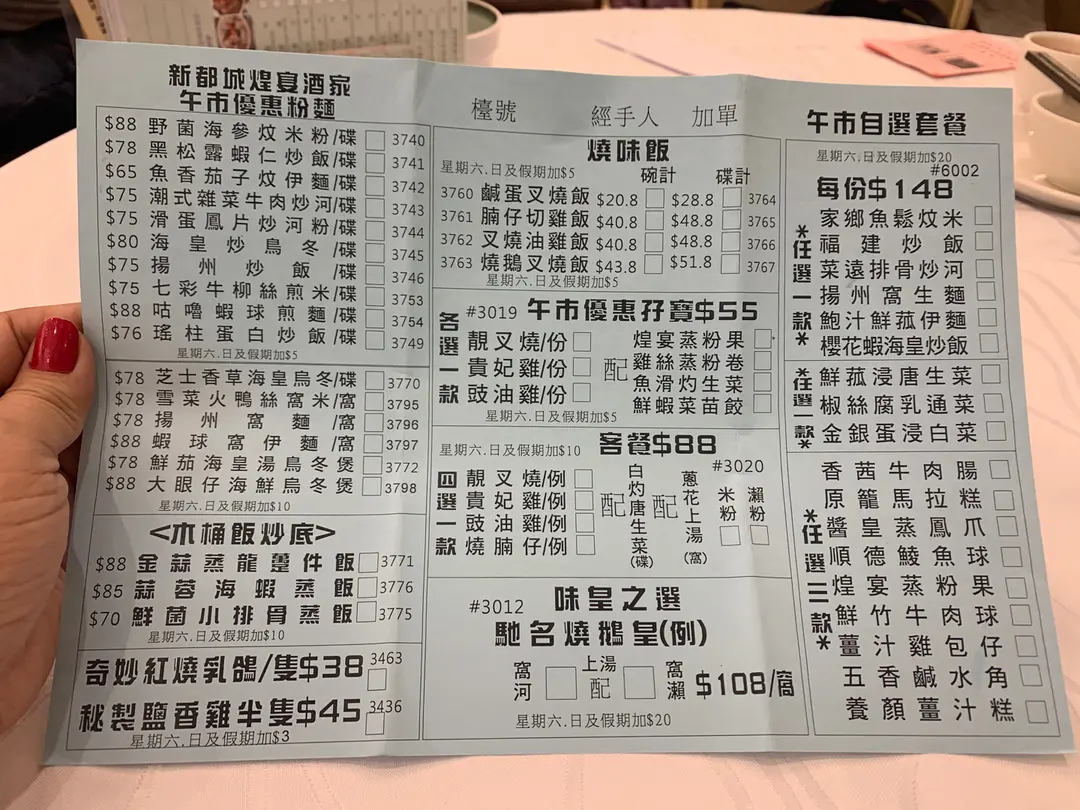 新都城煌宴酒家
午市優惠粉麵
$88 野菌海參炆米粉/碟 3740
$78 黑松露蝦仁炒飯/碟 3741
$65 魚香茄子炆伊麵/碟 3742
$75 潮式雜菜牛肉炒河/碟 3743
$75 滑蛋鳳片炒河粉/碟 3744
$80 海皇炒烏冬/碟 3745
$75 揚州炒飯/碟 3746
$75 七彩牛柳絲煎米/碟 3753
$88 咕嚕蝦球煎麵/碟 3754
$76 瑤柱蛋白炒飯/碟 3749
星期六.日及假期加$5
$78 芝士香草海皇烏冬/碟 3770
$78 雪菜火鴨絲窩米/窩 3795
$78 揚州窩麵/窩 3796
$88 蝦球窩伊麵/窩 3797
$78 鮮茄海皇湯烏冬煲 3772
$88 大眼仔海鮮烏冬煲 3798
星期六.日及假期加$10
<木桶飯炒底>
$88 金蒜蒸龍躉件飯 3771
$85 蒜蓉海蝦蒸飯 3776
$70 鮮菌小排骨蒸飯 3775
星期六.日及假期加$10
奇妙紅燒乳鴿/隻$38 3463
秘製鹽香雞半隻$45 3436
星期六.日及假期加$3
檯號 經手人 加單
燒味飯
星期六.日及假期加$5 碗計 碟計
3760 鹹蛋叉燒飯 $20.8 $28.8 3764
3761 腩仔切雞飯 $40.8 $48.8 3765
3762 叉燒油雞飯 $40.8 $48.8 3766
3763 燒鵝叉燒飯 $43.8 $51.8 3767
星期六.日及假期加$5
#3019 午市優惠孖寶$55
各選一款
靚叉燒/份
貴妃雞/份
豉油雞/份
配
煌宴蒸粉果
雞絲蒸粉卷
魚滑灼生菜
鮮蝦菜苗餃
星期六.日及假期加$5
星期六.日及假期加$10 客餐$88
#3020
四選一款
靚叉燒/例
貴妃雞/例
豉油雞/例
燒腩仔/例
配
白灼唐生菜(碟)
配
蔥花上湯(窩)
米粉
瀨粉
#3012 味皇之選
馳名燒鵝皇(例)
窩河 上湯配 窩瀨 $108/窩
星期六.日及假期加$20
午市自選套餐
星期六.日及假期加$20
#6002
每份$148
*任選一款*
家鄉魚鬆炆米
福建炒飯
菜遠排骨炒河
揚州窩生麵
鮑汁鮮菰伊麵
櫻花蝦海皇炒飯
*任選一款*
鮮菰浸唐生菜
椒絲腐乳通菜
金銀蛋浸白菜
*任選三款*
香茜牛肉腸
原籠馬拉糕
醬皇蒸鳳爪
順德鯪魚球
煌宴蒸粉果
鮮竹牛肉球
薑汁雞包仔
五香鹹水角
養顏薑汁糕